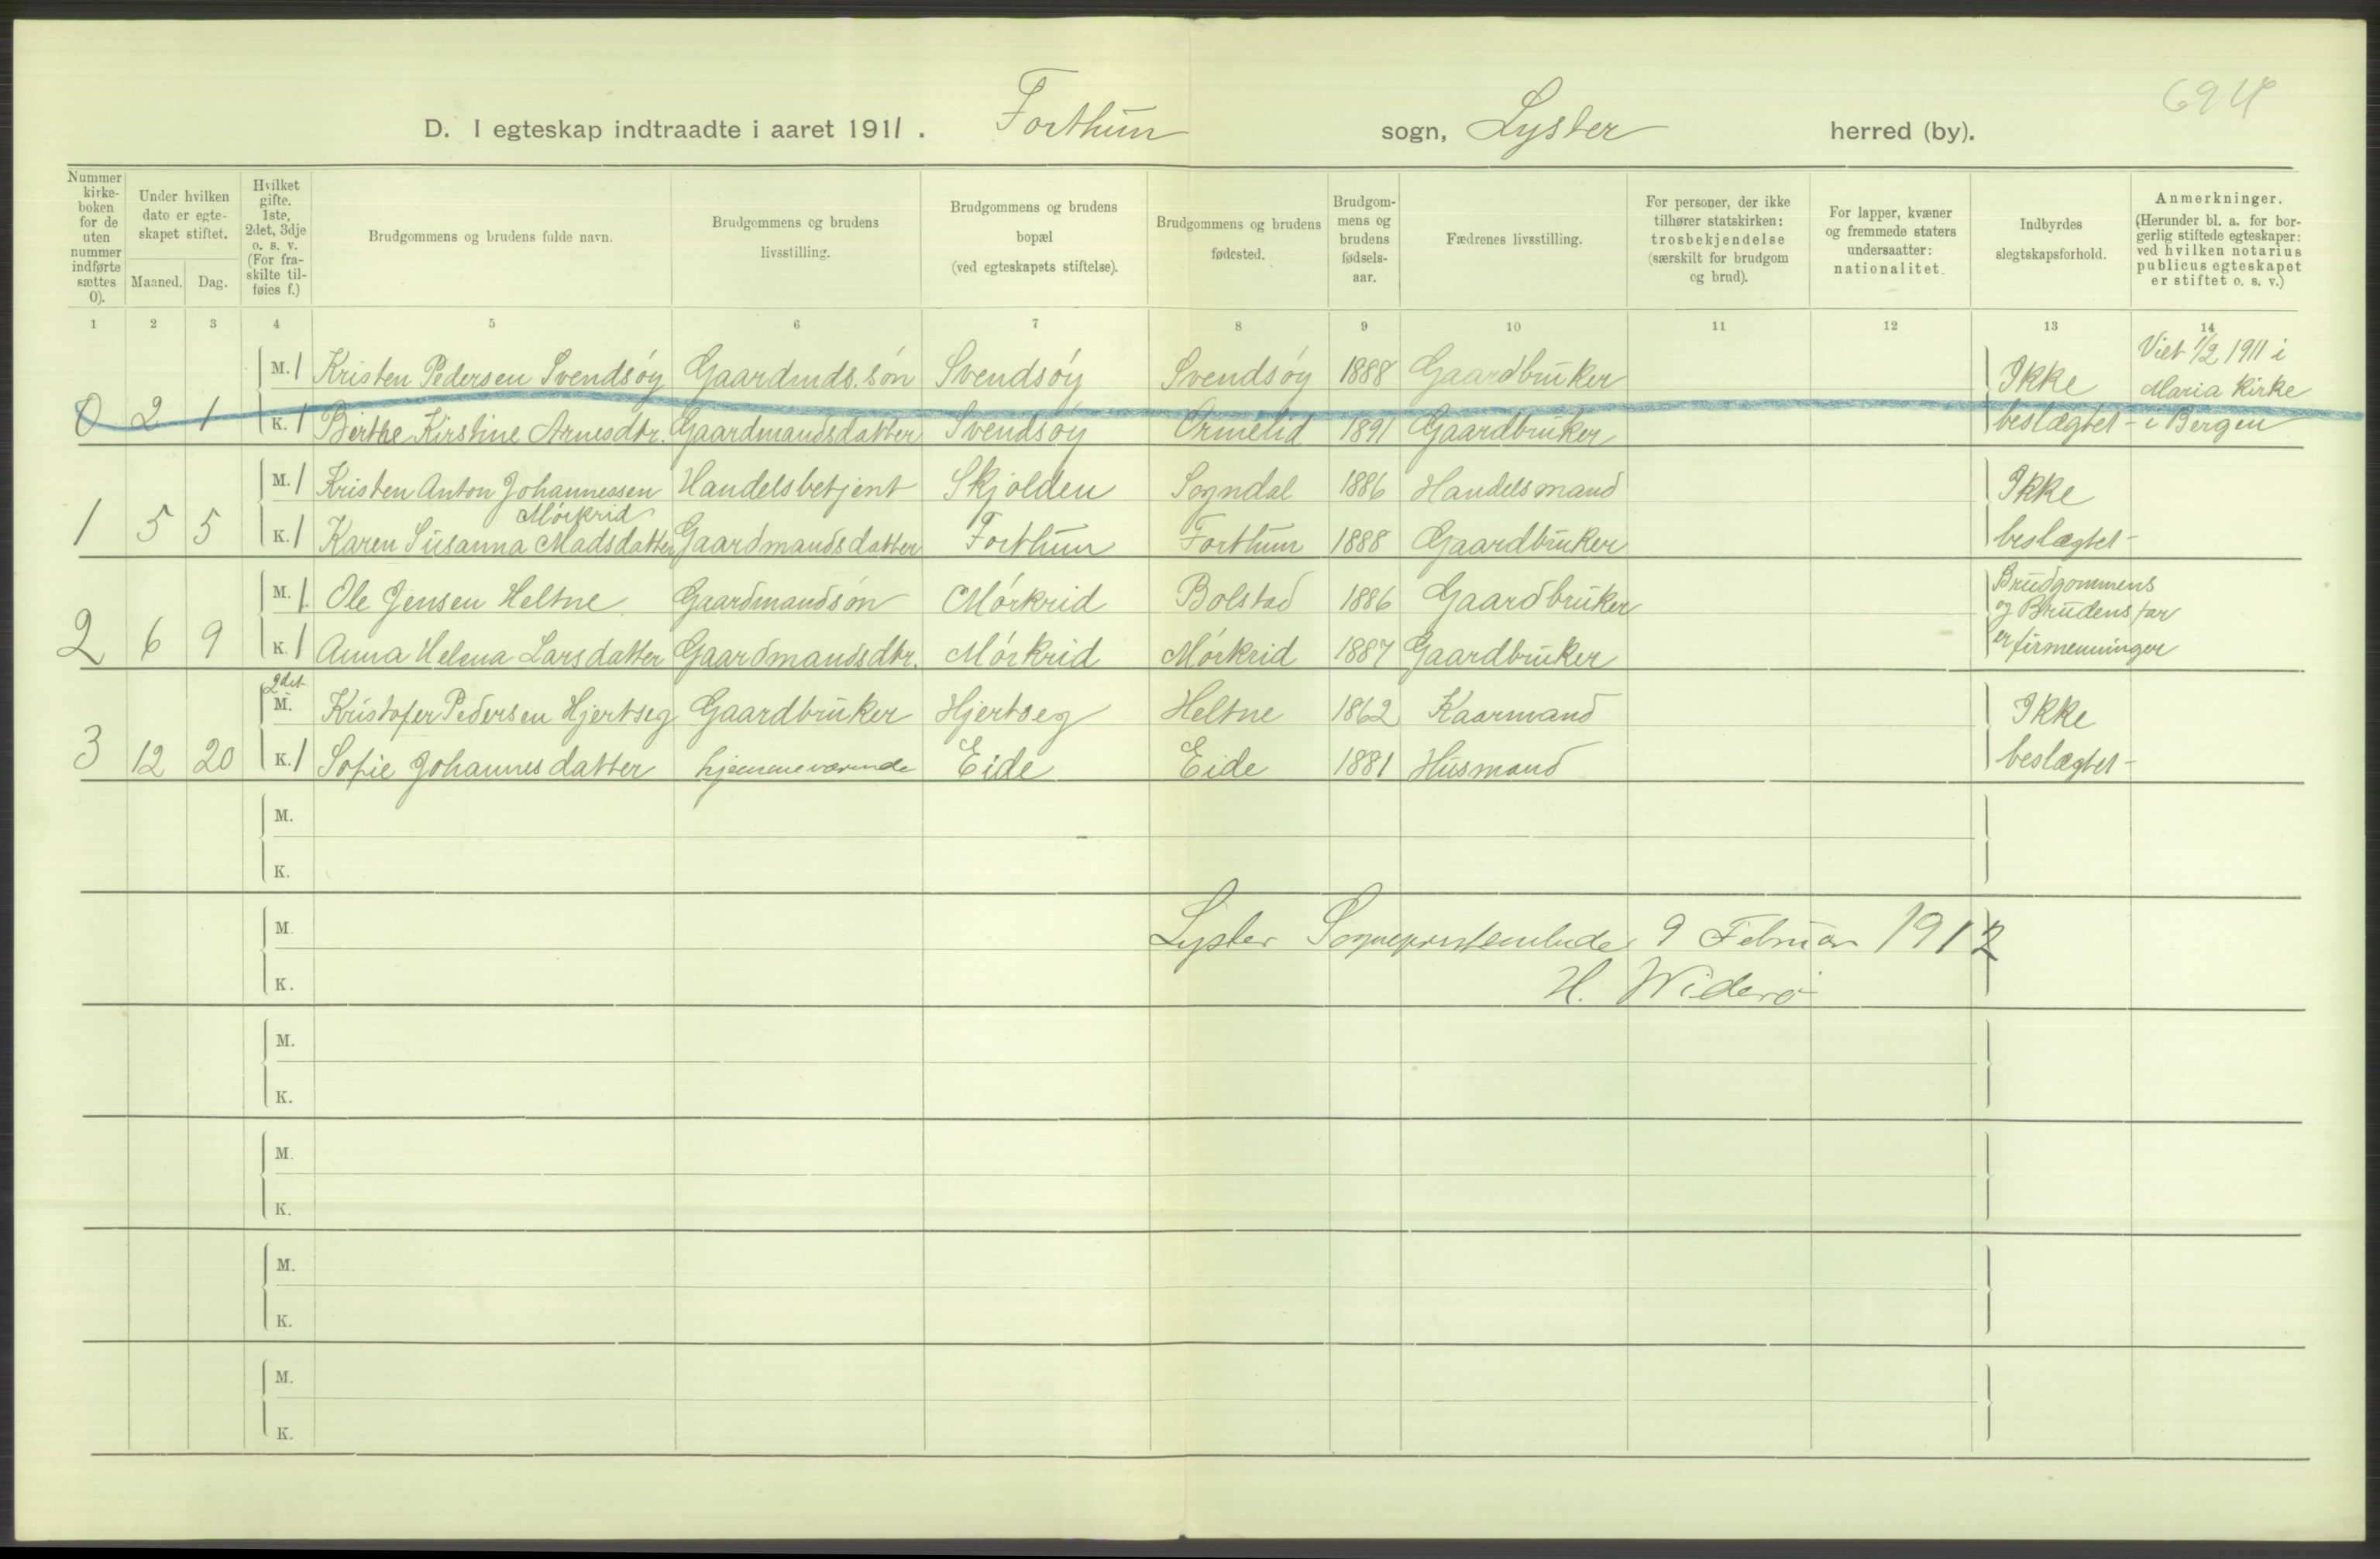 694
D. I egteskap indtraadte i aaret 1911. Forthun sogn, Lyster herred (by).
Nummer kirke-boken for de uten nummer indførte sættes 0).
Under hvilken dato er egte-skapet stiftet.
Maaned. Dag.
Hvilket gifte. 1ste, 2det, 3dje o. s. v. (For fra-skilte til-føies f.)
Brudgommens og brudens fulde navn.
Brudgommens og brudens livsstilling.
Brudgommens og brudens bopæl (ved egteskapets stiftelse).
Brudgommens og brudens fødested.
Brudgom-mens og brudens fødsels-aar.
Fædrenes livsstilling.
For personer, der ikke tilhører statskirken: trosbekjendelse (særskilt for brudgom og brud).
For lapper, kvæner og fremmede staters undersaatter: nationalitet.
Indbyrdes slegtskapsforhold.
Anmerkninger. (Herunder bl. a. for bor-gerlig stiftede egteskaper: ved hvilken notarius publicus egteskapet er stiftet o. s. v.)
1 2 3 4 5 6 7 8 9 10 11 12 13 14
M. 1 Kristen Pedersen Svendsøy Gaardmds.søn Svendsøy Svendsøy 1888 Gaardbruker Ikke Viet 1/2 1911 i Maria Kirke
0 2 1 K. 1 Birthe Kirstine Arnesdtr. Gaardmandsdatter Svendsøy Ormelid 1891 Gaardbruker beslægtet- i Bergen
M. 1 Kristen Anton Johannessen Handelsbetjent Skjolden Sogndal 1886 Handelsmand Ikke
Mørkrid
1 5 5 K. 1 Karen Susanna Madsdatter Gaardmandsdatter Forthun Forthun 1888 Gaardbruker beslægtet-
M. 1. Ole Jensen Heltne Gaardmandsøn Mørkrid Bolstad 1886 Gaardbruker Brudgommens og Brudens far
2 6 9 K. 1 Anna Helena Larsdatter Gaardmandsdtr. Mørkrid Mørkrid 1887 Gaardbruker er firmenninger
2det
M. Kristofer Pedersen Hjertseg Gaardbruker Hjertseg Heltne 1862 Kaarmand Ikke
3 12 20 K. 1 Sofie Johannesdatter hjemmeværende Eide Eide 1881 Husmand beslægtet-
M.
K.
M. Lyster Sogneprestembede 9 Februar 1912
K. H. Widerø
M.
K.
M.
K.
M.
K.
M.
K.